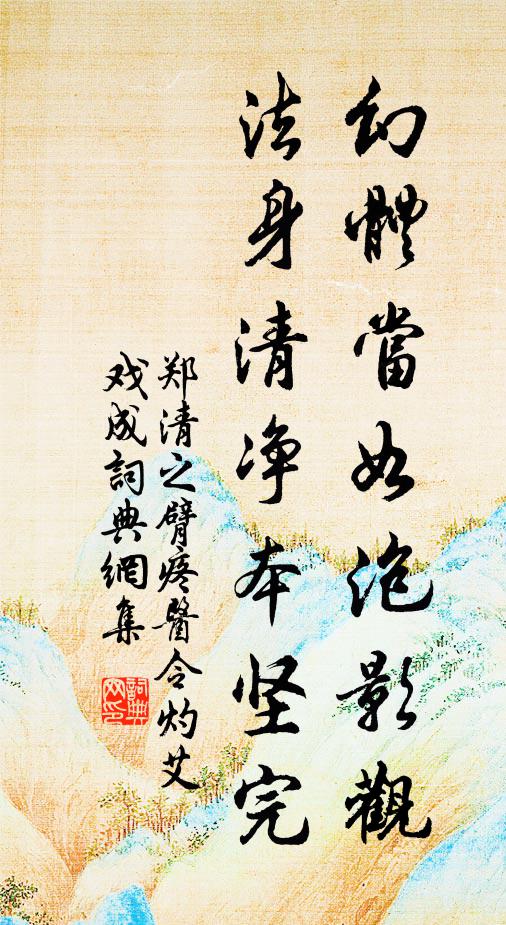 幻體當如泡影觀
法身清净本坚完
郑清之臂疼醫令灼艾
戏成詞典網集
詞典网印